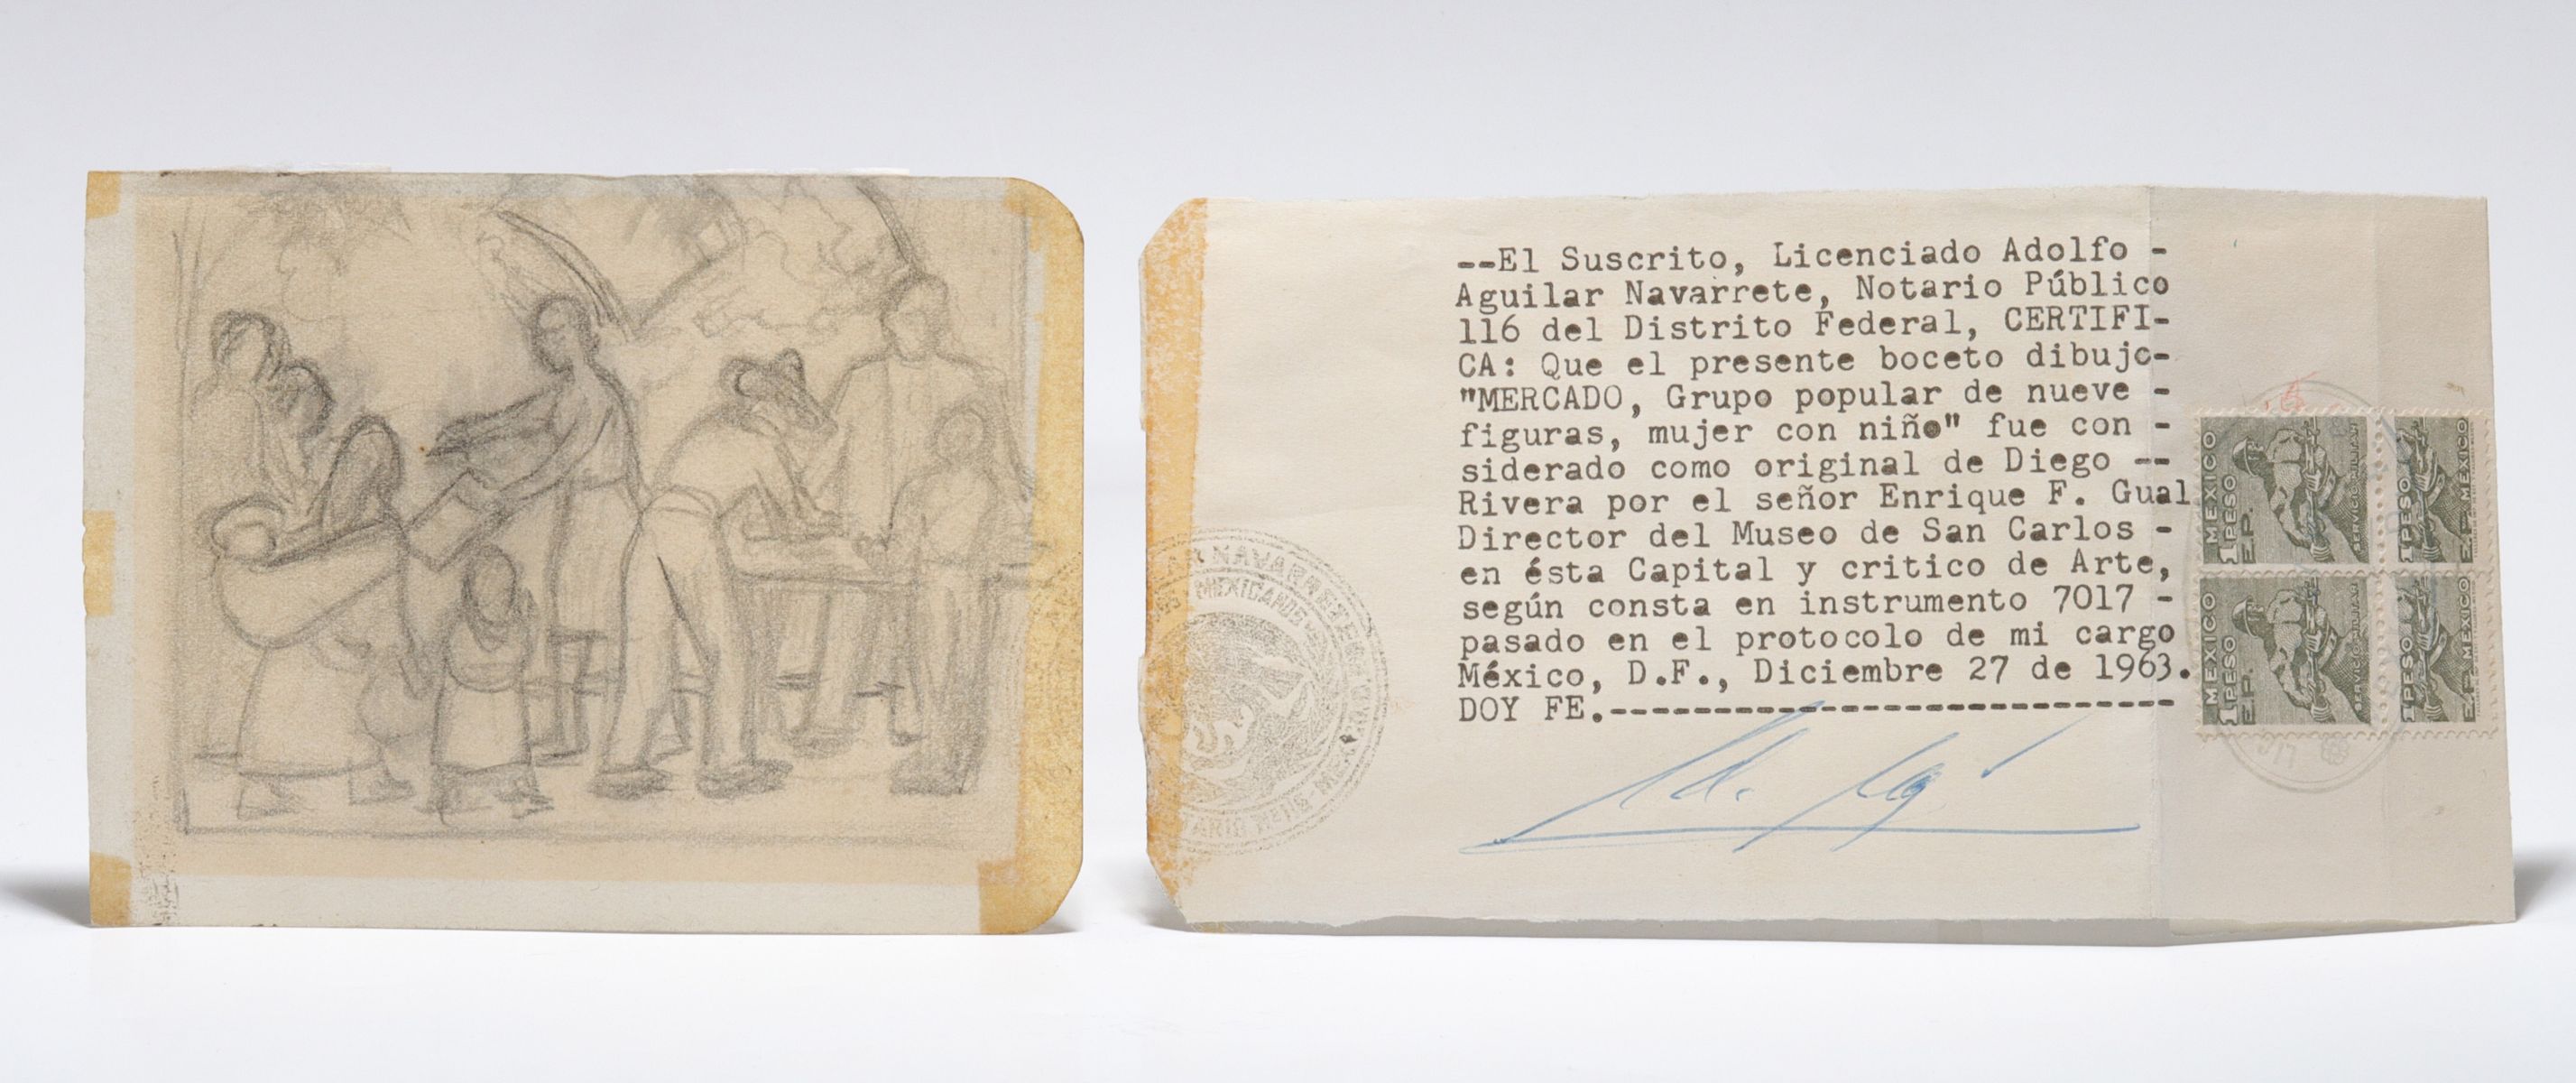 --El Suscrito, Licenciado Adolfo -
Aguilar Navarrete, Notario Público
116 del Distrito Federal, CERTIFI-
CA: Que el presente boceto dibujo-
"MERCADO, Grupo popular de nueve -
figuras, mujer con niño" fue con -
siderado como original de Diego --
Rivera por el señor Enrique F. Gual
Director del Museo de San Carlos -
en ésta Capital y critico de Arte,
según consta en instrumento 7017 -
pasado en el protocolo de mi cargo
México, D.F., Diciembre 27 de 1963.
DOY FE.-----------------------------
NAVARRETE
MEXICANOS
MEXICO
1 PESO
E.P.
1 PESO
E.P. MEXICO
MEXICO
1 PESO
E.P.
1 PESO
E.P. MEXICO